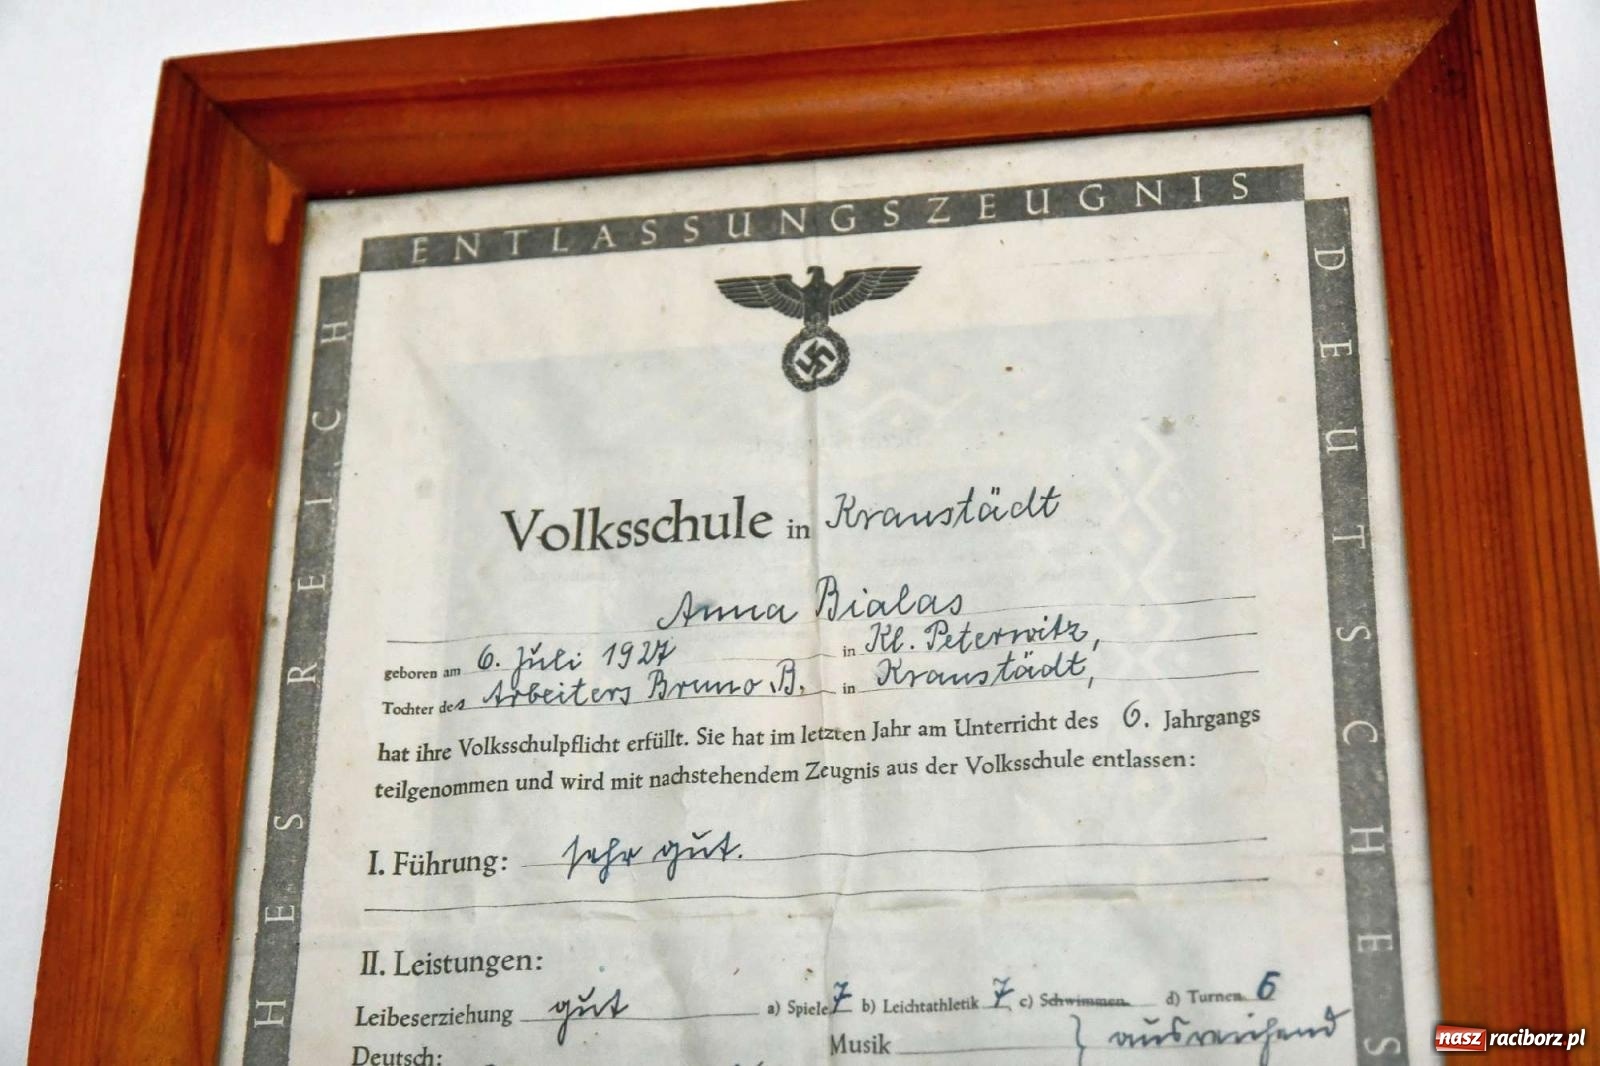 ENTLASSUNGSZEUGNIS
DEUTSCHES
HES REICH
Volksschule in Kranstädt
Anna Bialas
geboren am 6. Juli 1927 in Kl. Peterwitz,
Tochter des Arbeiters Bruno B. in Kranstädt,
hat ihre Volksschulpflicht erfüllt. Sie hat im letzten Jahr am Unterricht des 6. Jahrgangs
teilgenommen und wird mit nachstehendem Zeugnis aus der Volksschule entlassen:
I. Führung: sehr gut.
II. Leistungen:
Leibeserziehung gut a) Spiele 7 b) Leichtathletik 7 c) Schwimmen d) Turnen 6
Deutsch: Musik } ausreichend
nasz raciborz.pl